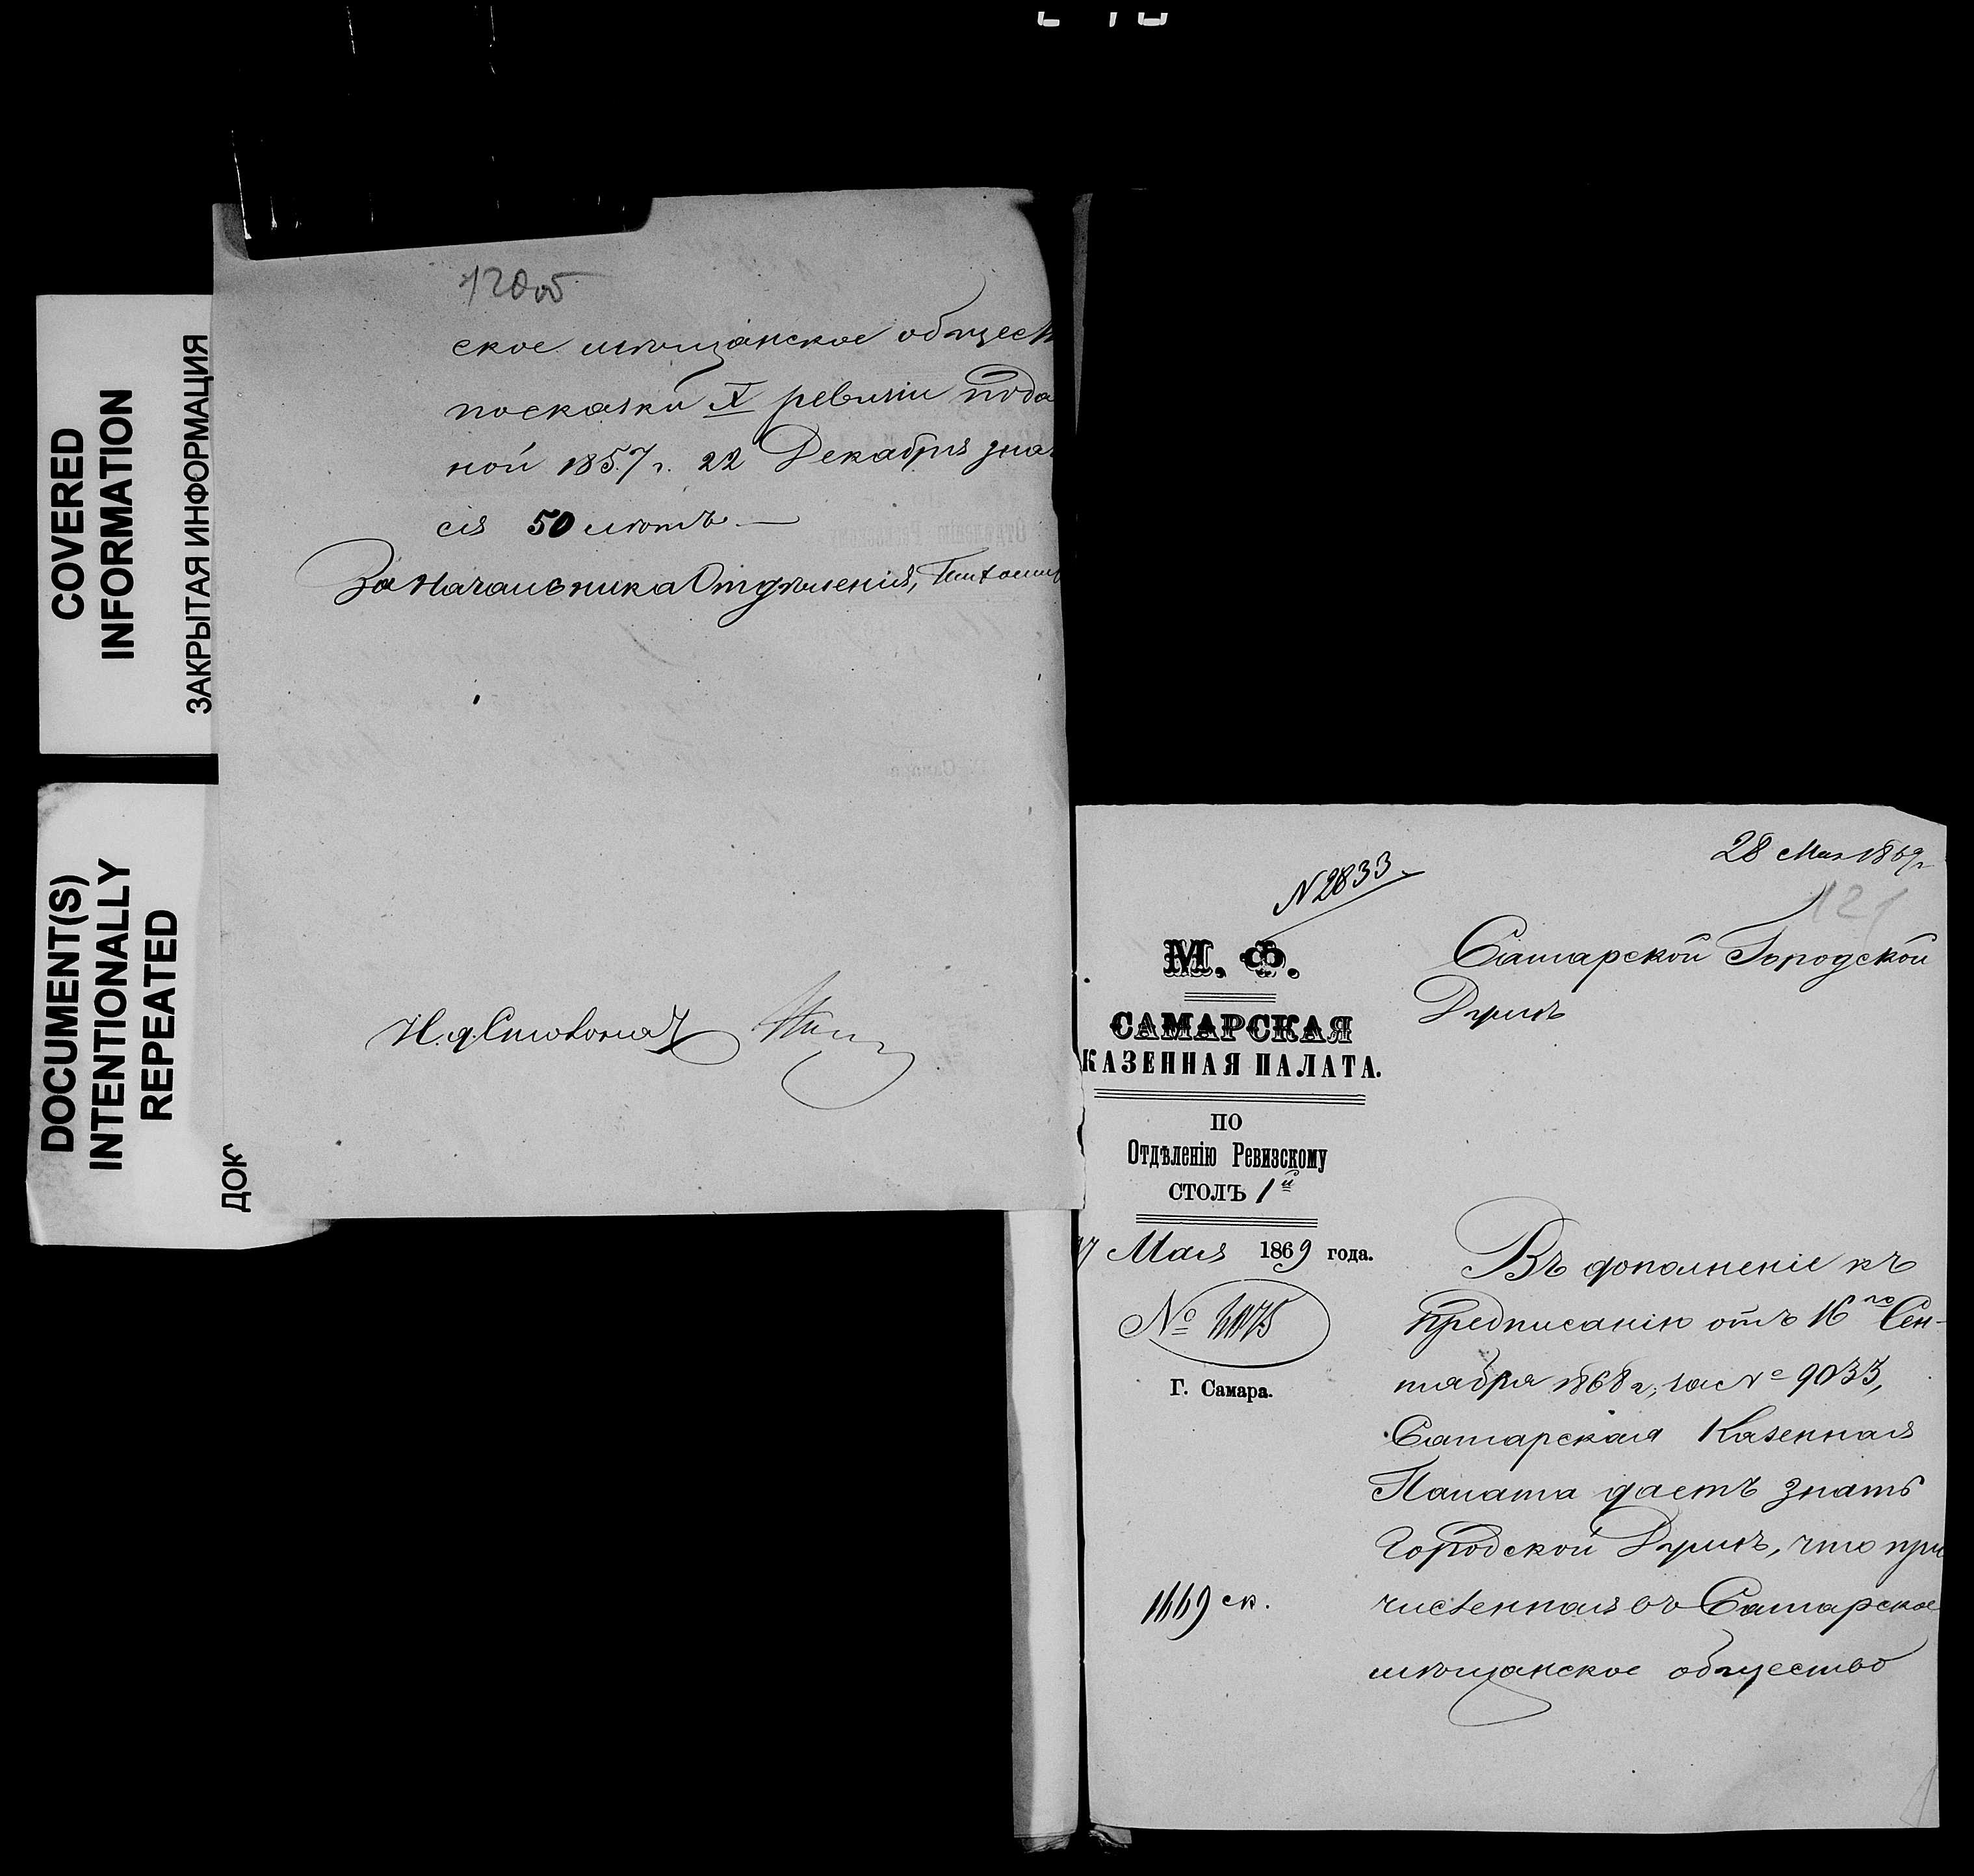 COVERED
INFORMATION
ЗАКРЫТАЯ ИНФОРМАЦИЯ
DOCUMENT(S)
INTENTIONALLY
REPEATED
ДОК
120 об
ское мѣщанское общест
по сказки X ревизіи пода
ной 1857 г. 22 Декабря зна
ся 50 лѣтъ. —
За Начальника Отдѣленія,
И. д. Столонач
28 Мая 1869 г
121
N 2833.
М. Ф.
САМАРСКАЯ
КАЗЕННАЯ ПАЛАТА.
ПО
Отдѣленію Ревизскому
СТОЛЪ 1й
Мая 1869 года.
№
Г. Самара.
1669 ск.
Самарской Городской
Думѣ
Въ дополненіе къ
предписанію отъ 16го Сен-
тября 1868 г, за № 9033,
Самарская Казенная
Палата даетъ знать
Городской Думѣ, что при
численная въ Самарское
мѣщанское общество